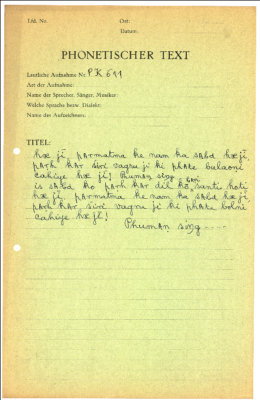 Lfd. Nr.
Ort:
Datum:
PHONETISCHER TEXT
Lautliche Aufnahme Nr. PK 611
Art der Aufnahme:
Name des Sprecher, Sänger, Musiker:
Welche Sprache bezw. Dialekt:
Name des Aufnehmers:
TITEL:
hæ jī, pArmatma ke nam ka sAbd hæ jī,
pARh kAr siri vagru ji ki phAte bulaoni
cahiye hæ jī!
is sAbd ko pARh kAr dil ko bARi santi hoti
hæ jī, pArmatma ke nam ka sAbd hæ jī,
pARh kAr siri vagru ji ki phAte bolni
cahiye hæ jī!
Phuman sīŋg